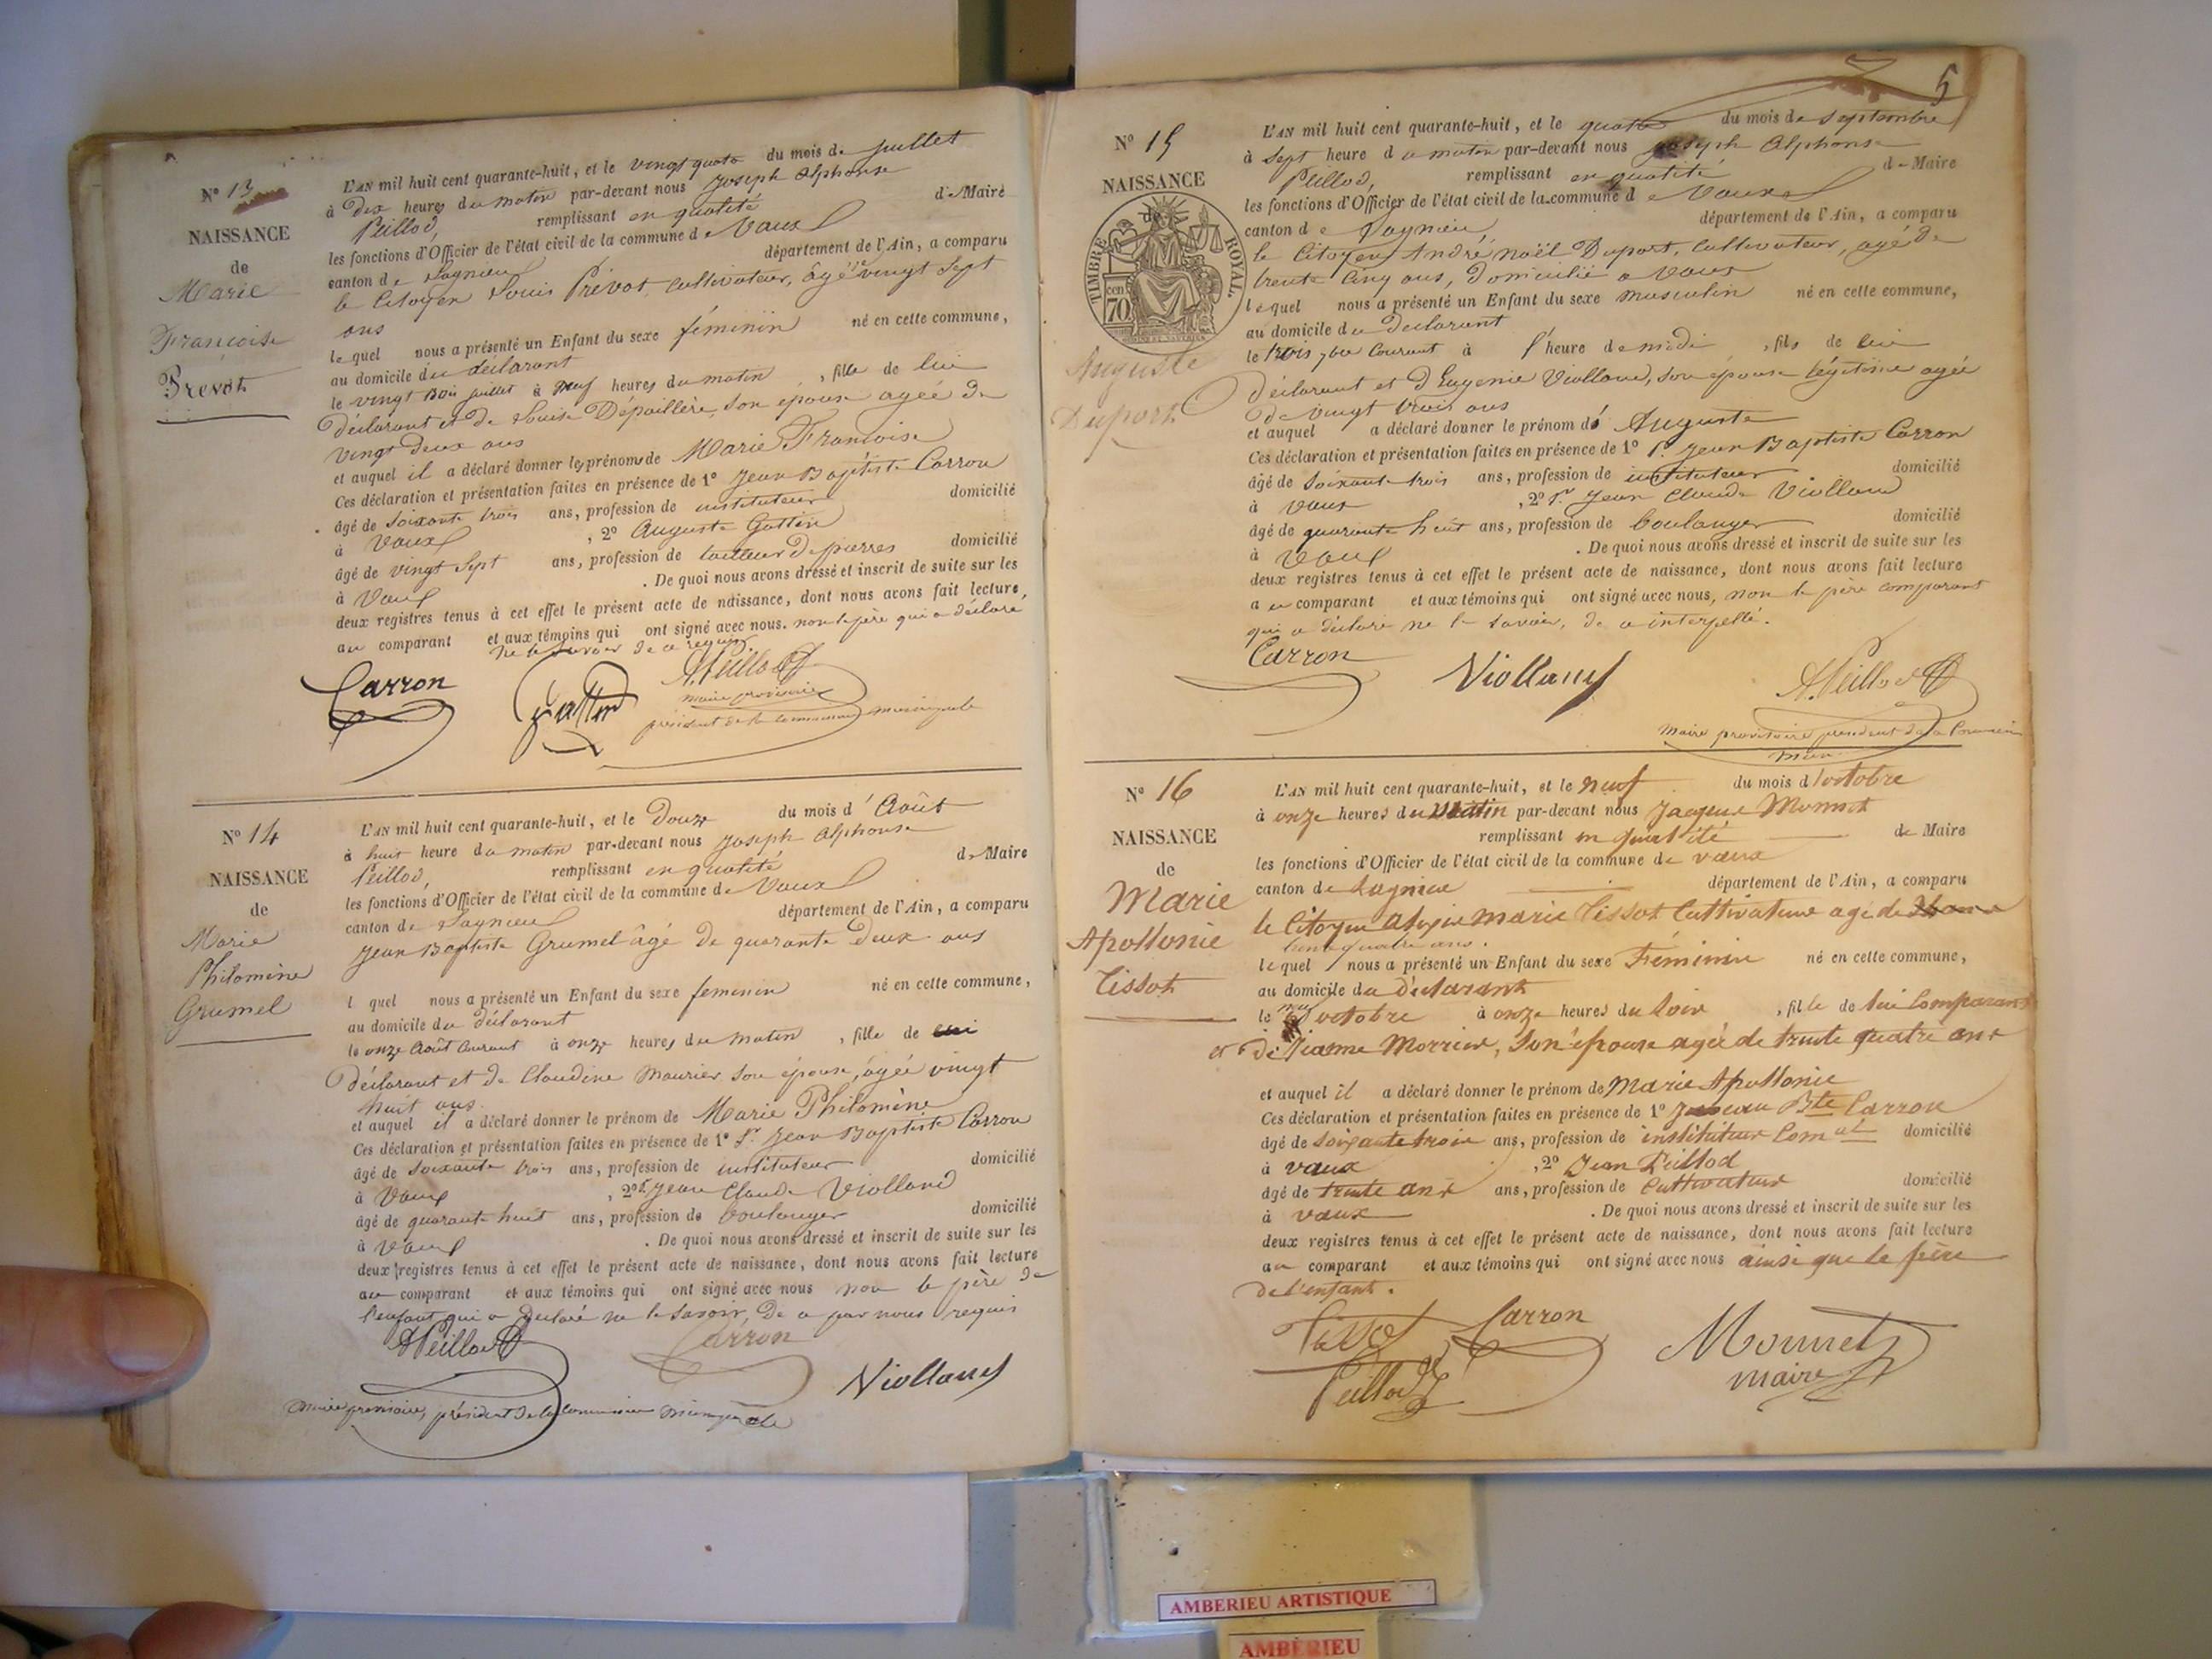 Nº 13
NAISSANCE
de
Marie
Françoise
Prevot
L'AN mil huit cent quarante-huit, et le vingt quatre du mois de juillet
à Dix heures du matin par-devant nous Joseph Alphonse
Peillod, remplissant en qualité de Maire
les fonctions d'Officier de l'état civil de la commune de Vaux
canton de Lagnieu département de l'Ain, a comparu
le Citoyen Louis Prévot, cultivateur, âgé de vingt sept
ans
lequel nous a présenté un Enfant du sexe féminin né en cette commune,
au domicile du déclarant
le vingt trois juillet à neuf heures du matin, fille de lui
Déclarant et de Louise Dépaillère, son épouse agée de
vingt deux ans
et auquel il a déclaré donner les prénoms de Marie Françoise
Ces déclaration et présentation faites en présence de 1º Jean Baptiste Carron
âgé de soixante trois ans, profession de instituteur domicilié
à Vaux, 2º Auguste Gattin
âgé de vingt sept ans, profession de tailleur de pierres domicilié
à Vaux. De quoi nous avons dressé et inscrit de suite sur les
deux registres tenus à cet effet le présent acte de naissance, dont nous avons fait lecture,
au comparant et aux témoins qui ont signé avec nous. non le père qui a déclaré
ne le savoir de ce requis.
Carron Gattin A. Peillod
maire provisoire
président de la commission municipale
Nº 14
NAISSANCE
de
Marie
Philomène
Grumel
L'AN mil huit cent quarante-huit, et le Douze du mois d'Août
à huit heure du matin par-devant nous Joseph Alphonse
Peillod, remplissant en qualité de Maire
les fonctions d'Officier de l'état civil de la commune de Vaux
canton de Lagnieu département de l'Ain, a comparu
Jean Baptiste Grumel âgé de quarante deux ans
l quel nous a présenté un Enfant du sexe feminin né en cette commune,
au domicile du déclarant
le onze Août courant à onze heures du matin, fille de lui
Déclarant et de Claudine Maurier son épouse, âgée vingt
huit ans.
et auquel il a déclaré donner le prénom de Marie Philomène
Ces déclaration et présentation faites en présence de 1º Sr. Jean Baptiste Carron
âgé de soixante trois ans, profession de instituteur domicilié
à Vaux, 2º Sr. Jean Claude Violland
âgé de quarante huit ans, profession de boulanger domicilié
à Vaux. De quoi nous avons dressé et inscrit de suite sur les
deux registres tenus à cet effet le présent acte de naissance, dont nous avons fait lecture
au comparant et aux témoins qui ont signé avec nous non le père de
l'enfant qui a declaré ne le savoir, de ce par nous requis
A Peillod Carron Violland
maire provisoire, président de la commission municipale
5
Nº 15
NAISSANCE
de
TIMBRE ROYAL
cen 70
Auguste
Duport
L'AN mil huit cent quarante-huit, et le quatre du mois de septembre
à sept heure du matin par-devant nous Joseph Alphonse
Peillod, remplissant en qualité de Maire
les fonctions d'Officier de l'état civil de la commune de Vaux
canton de Lagnieu département de l'Ain, a comparu
le Citoyen André Noël Duport, cultivateur, agé de
trente cinq ans, domicilié a Vaux
lequel nous a présenté un Enfant du sexe masculin né en cette commune,
au domicile du declarant
le trois 7bre courant à l'heure de midi, fils de lui
déclarant et d'Eugenie Violland, son épouse légitime agée
de vingt trois ans
et auquel a déclaré donner le prénom d' Auguste
Ces déclaration et présentation faites en présence de 1º Sr. Jean Baptiste Carron
âgé de soixante trois ans, profession de instituteur domicilié
à Vaux, 2º Sr. Jean Claude Violland
âgé de quarante huit ans, profession de boulanger domicilié
à Vaux. De quoi nous avons dressé et inscrit de suite sur les
deux registres tenus à cet effet le présent acte de naissance, dont nous avons fait lecture
au comparant et aux témoins qui ont signé avec nous, non le père comparant
qui a déclaré ne le savoir, de ce interpellé.
Carron Violland A. Peillod
maire provisoire président de la Commission
Nº 16
NAISSANCE
de
Marie
Apollonie
Tissot
L'AN mil huit cent quarante-huit, et le neuf du mois d'octobre
à onze heures du matin par-devant nous Jacques Monnet
remplissant en qualité de Maire
les fonctions d'Officier de l'état civil de la commune de vaux
canton de Lagnieu département de l'Ain, a comparu
le Citoyen marie Tissot Cultivateur agé de
trente quatre ans.
lequel nous a présenté un Enfant du sexe Féminin né en cette commune,
au domicile du déclarant
le octobre à onze heures du soir, fille de lui Comparant
et de Jeanne Morrier, son épouse agée de trente quatre ans
et auquel il a déclaré donner le prénom de Marie Apollonie
Ces déclaration et présentation faites en présence de 1º Jean Bte Carron
âgé de soixante trois ans, profession de instituteur Comal domicilié
à vaux, 2º Jean Peillod
âgé de trente ans ans, profession de Cultivateur domicilié
à vaux. De quoi nous avons dressé et inscrit de suite sur les
deux registres tenus à cet effet le présent acte de naissance, dont nous avons fait lecture
au comparant et aux témoins qui ont signé avec nous ainsi que le père
de l'enfant.
Tissot Carron Monnet
Peillod maire
AMBERIEU ARTISTIQUE
AMBÉRIEU